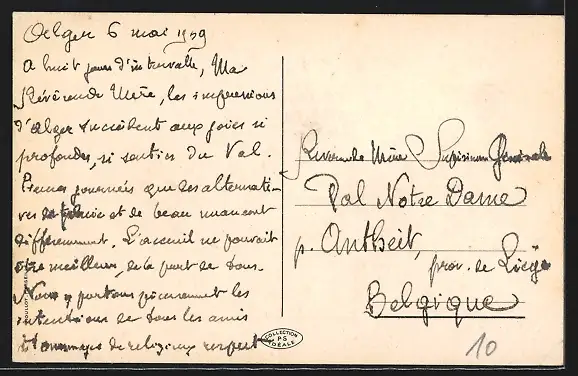 Alger 6 mai 1939
A huit jours d'intervalle, Ma
Révérende Mère, les impressions
d'Alger succèdent aux joies si
profondes, si senties du Val.
journées que les alternati-
ves de pluie et de beau
L'accueil ne pouvait
être meilleur, de la part de tous.
Nous y portons les
intentions de tous les amis
Hommages de religieux respect
Révérende Mère Supérieure Générale
Val Notre Dame
p. Antheit,
prov. de Liége
Belgique
COLLECTION
PS
IDÉALE
10